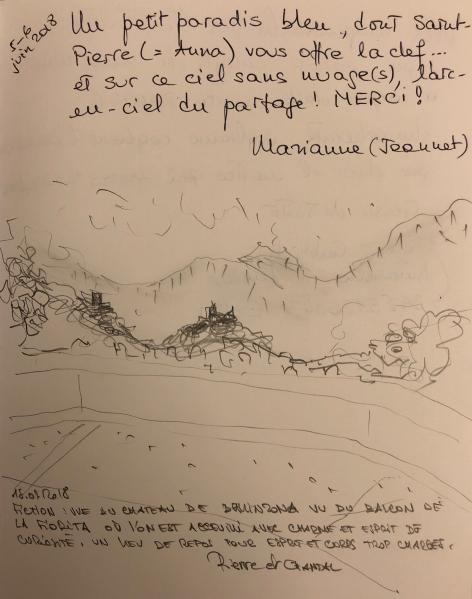 5-6
juin 2018
Un petit paradis bleu, dont Saint-
Pierre (= Anna) vous offre la clef...
et sur ce ciel sans nuage(s), l'arc-
en-ciel du partage ! MERCI !
Marianne (Jeannet)
18.07.2018
FICTION : VUE DU CHATEAU DE BELLINZONA VU DU BALCON DE
LA FIORITA OÙ L'ON EST ACCUEILLI AVEC CHARME ET ESPRIT DE
CURIOSITÉ. UN LIEU DE REPOS POUR ESPRIT ET CORPS TROP CHARGÉS.
Pierre et